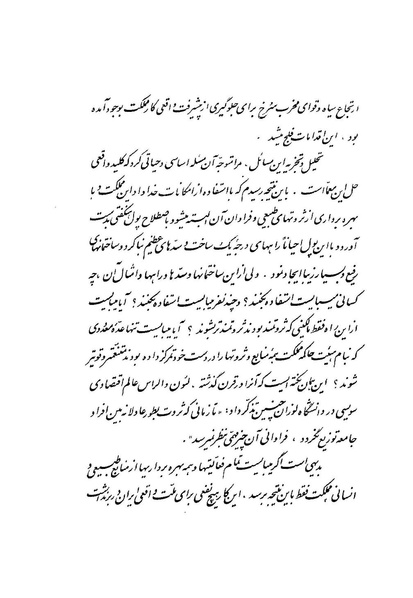 ارتجاع سیاه و قوای مخرب سرخ برای جلوگیری از پیشرفت واقعی کار مملکت بوجود آمده
بود ، این اقدامات فلج میشد .
تحلیل و تجزیه این مسائل ، مرا متوجه آن مسئله اساسی و حیاتی کرد که کلید واقعی
حل این معما است . باین نتیجه رسیدم که با استفاده از امکانات خداداد این مملکت و با
بهره برداری از ثروتهای طبیعی و فراوان آن البته میشود باصطلاح پول هنگفتی بدست
آورد و با این پول احیاناً راههای درجه یک ساخت و سدهای عظیم بنا کرد و ساختمانهای
رفیع و بسیار زیبا ایجاد نمود . ولی از این ساختمانها و سدها و راهها و امثال آن ، چه
کسانی میبایست استفاده بکنند ؟ و چند نفر میبایست استفاده بکنند ؟ آیا میبایست
از این راه فقط مالکینی که ثروتمند بودند ثروتمندتر شوند ؟ آیا میبایست تنها عده معدودی
که بنام هیئت حاکمه مملکت همه منابع و ثروتها را در دست خود تمرکز داده بودند متنفذتر و قویتر
شوند ؟ این همان نکته است که آنرا در قرن گذشته ، لئون والراس عالم اقتصادی
سویسی در دانشگاه لوزان چنین تذکر داد : « تا زمانی که ثروت بطور عادلانه بین افراد
جامعه توزیع نگردد ، فراوانی آن چیز مهمی بنظر نمیرسد » .
بدیهی است اگر میبایست تمام فعالیتها و همه بهره برداریها از منابع طبیعی و
انسانی مملکت فقط باین نتیجه برسد ، این کار هیچ نفعی برای ملت واقعی ایران در بر نداشت